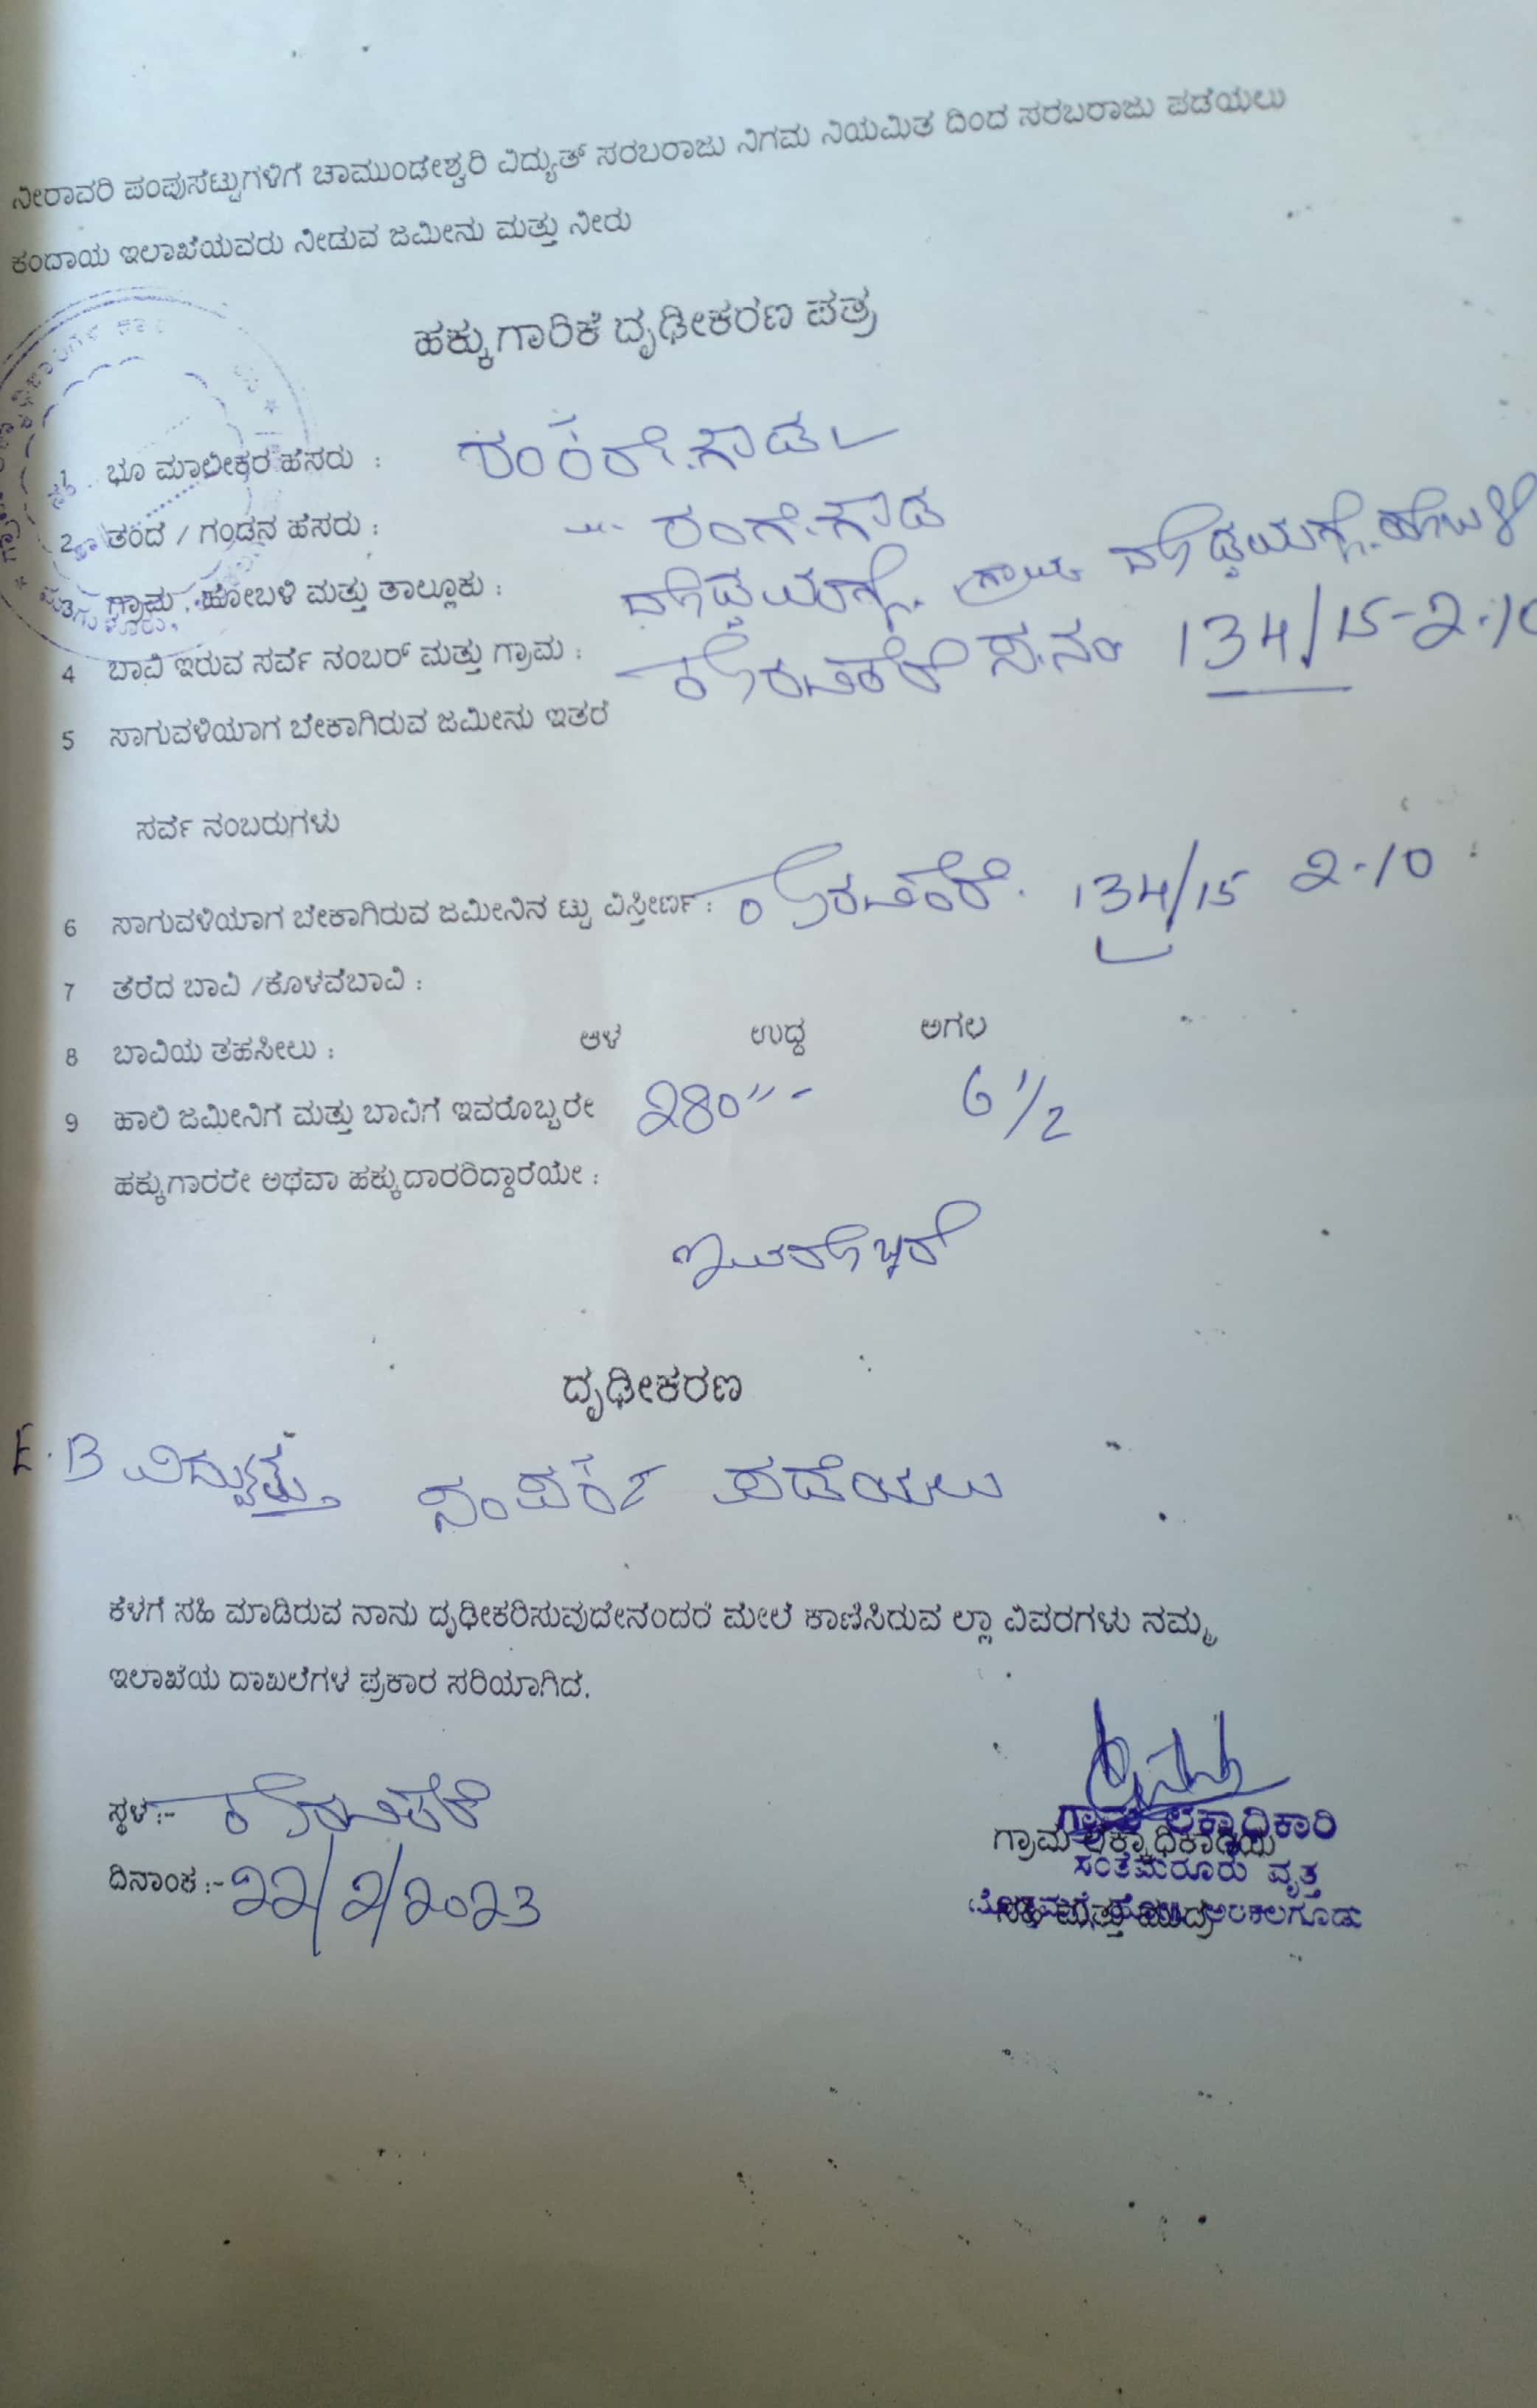 ನೀರಾವರಿ ಪಂಪುಸೆಟ್ಟುಗಳಿಗೆ ಚಾಮುಂಡೇಶ್ವರಿ ವಿದ್ಯುತ್ ಸರಬರಾಜು ನಿಗಮ ನಿಯಮಿತ ದಿಂದ ಸರಬರಾಜು ಪಡೆಯಲು
ಕಂದಾಯ ಇಲಾಖೆಯವರು ನೀಡುವ ಜಮೀನು ಮತ್ತು ನೀರು
ಹಕ್ಕುಗಾರಿಕೆ ದೃಢೀಕರಣ ಪತ್ರ
1 ಭೂ ಮಾಲೀಕರ ಹೆಸರು :
2 ತಂದೆ / ಗಂಡನ ಹೆಸರು : ರಂಗೇಗೌಡ
3 ಗ್ರಾಮ, ಹೋಬಳಿ ಮತ್ತು ತಾಲ್ಲೂಕು : ದೊಡ್ಡಮಗ್ಗೆ ಗ್ರಾಮ ದೊಡ್ಡಮಗ್ಗೆ ಹೋಬಳಿ
4 ಬಾವಿ ಇರುವ ಸರ್ವೆ ನಂಬರ್ ಮತ್ತು ಗ್ರಾಮ : ಸ.ನಂ 134/15-2.10
5 ಸಾಗುವಳಿಯಾಗ ಬೇಕಾಗಿರುವ ಜಮೀನು ಇತರೆ
ಸರ್ವೆ ನಂಬರುಗಳು
6 ಸಾಗುವಳಿಯಾಗ ಬೇಕಾಗಿರುವ ಜಮೀನಿನ ಟ್ಟು ವಿಸ್ತೀರ್ಣ : 134/15 2-10
7 ತೆರೆದ ಬಾವಿ /ಕೊಳವೆಬಾವಿ :
8 ಬಾವಿಯ ತಹಸೀಲು : ಆಳ ಉದ್ದ ಅಗಲ
9 ಹಾಲಿ ಜಮೀನಿಗೆ ಮತ್ತು ಬಾವಿಗೆ ಇವರೊಬ್ಬರೇ 280" - 6 1/2
ಹಕ್ಕುಗಾರರೇ ಅಥವಾ ಹಕ್ಕುದಾರರಿದ್ದಾರೆಯೇ :
ಇವರೊಬ್ಬರೆ
ದೃಢೀಕರಣ
E.B ವಿದ್ಯುತ್ತು ಸಂಪರ್ಕ ಪಡೆಯಲು
ಕೆಳಗೆ ಸಹಿ ಮಾಡಿರುವ ನಾನು ದೃಢೀಕರಿಸುವುದೇನೆಂದರೆ ಮೇಲೆ ಕಾಣಿಸಿರುವ ಲ್ಲಾ ವಿವರಗಳು ನಮ್ಮ
ಇಲಾಖೆಯ ದಾಖಲೆಗಳ ಪ್ರಕಾರ ಸರಿಯಾಗಿದೆ.
ಸ್ಥಳ :-
ಗ್ರಾಮ ಲೆಕ್ಕಾಧಿಕಾರಿ
ಗ್ರಾಮ ಲೆಕ್ಕಾಧಿಕಾರಿಯ
ದಿನಾಂಕ :- 22/2/2023
ವೃತ್ತ
ಸಹಿ ಮತ್ತು ಮುದ್ರೆ
ಅರಕಲಗೂಡು